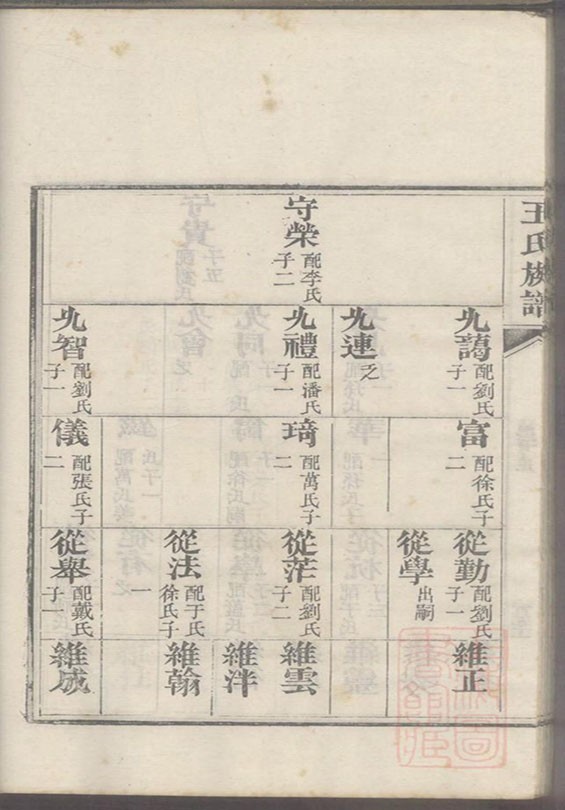 王氏族譜
守榮 配李氏 子二
允藹 配劉氏 子一
允連 之
允禮 配潘氏 子一
允智 配劉氏 子一
富 配徐氏子二
琦 配萬氏子二
儀 配張氏子二
從勤 配劉氏 子一
從學 出嗣
從茫 配劉氏 子二
從法 配于氏 徐氏子一
從舉 配戴氏 子一
維正
維雲
維泮
維翰
維成